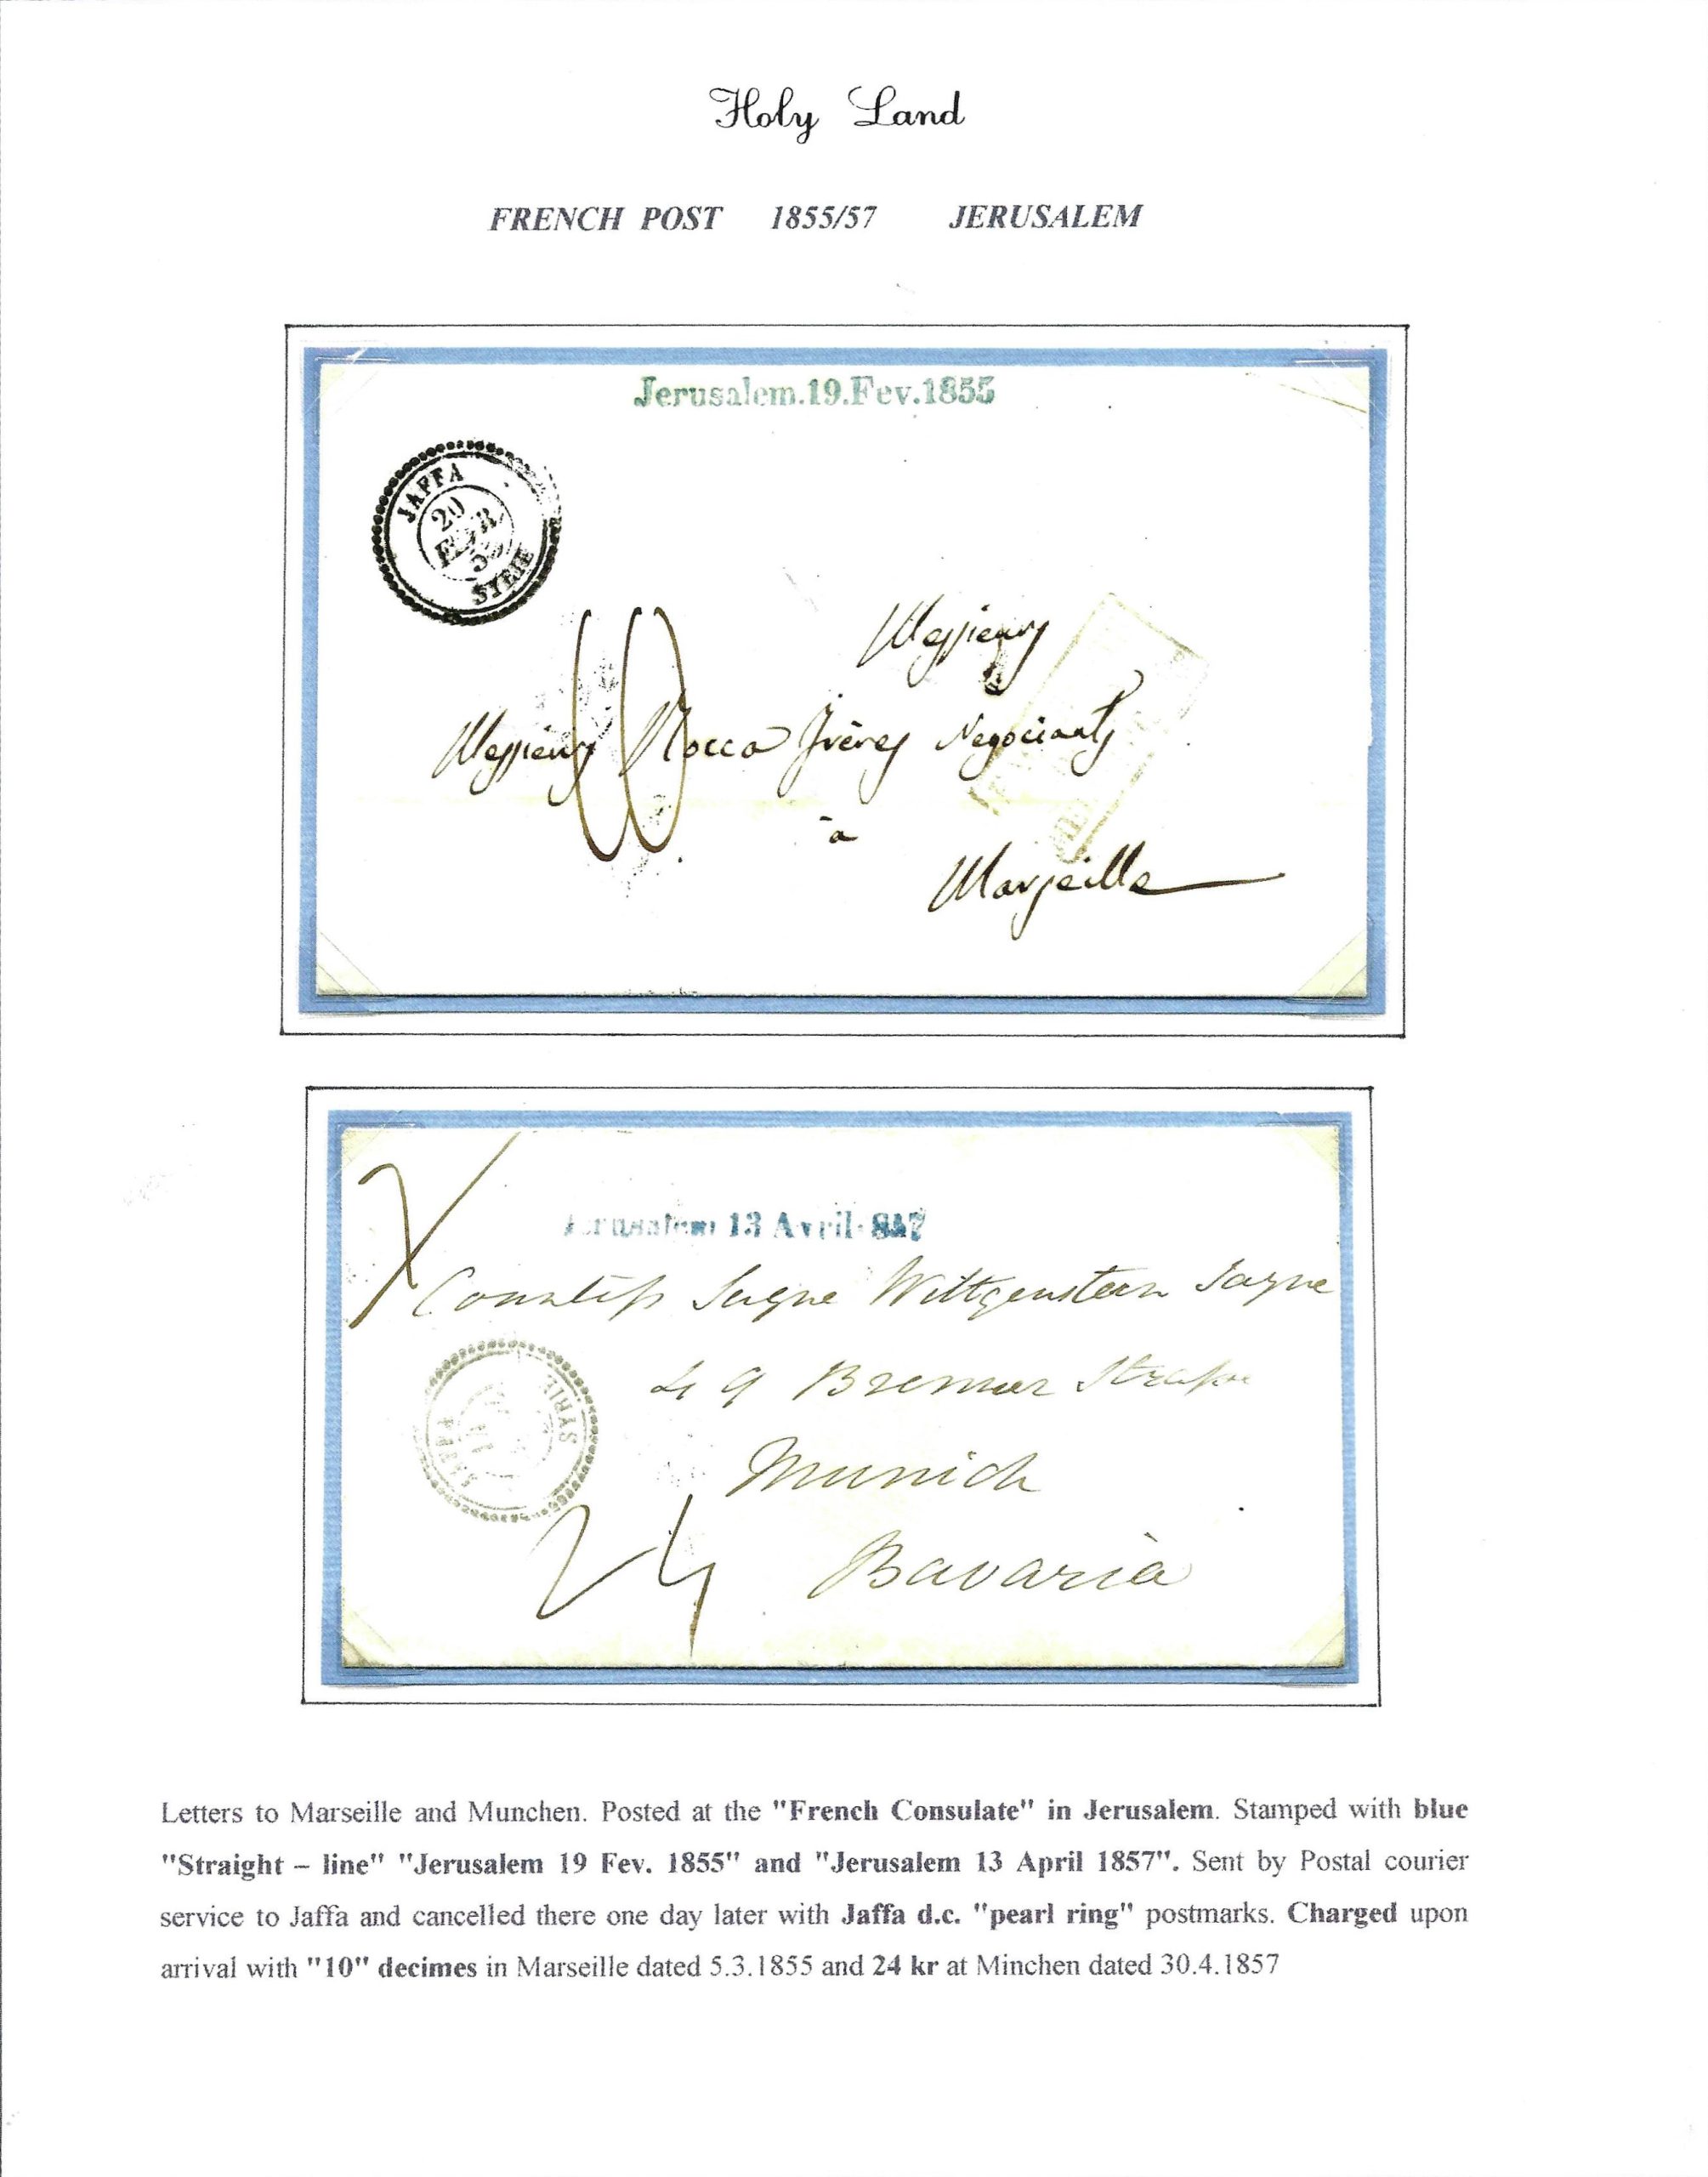 Holy Land
FRENCH POST 1855/57 JERUSALEM
Jerusalem.19.Fev.1855
JAFFA
20
FEVR
55
SYRIE
Messieurs
Messieurs Rocca Frères Negociants
à
Marseille
10
Jerusalem 13 Avril 857
Countess Sayne Wittgenstein Sayne
49 Brenner Strasse
JAFFA
SYRIE
Munich
24
Bavaria
Letters to Marseille and Munchen. Posted at the "French Consulate" in Jerusalem. Stamped with blue
"Straight – line" "Jerusalem 19 Fev. 1855" and "Jerusalem 13 April 1857". Sent by Postal courier
service to Jaffa and cancelled there one day later with Jaffa d.c. "pearl ring" postmarks. Charged upon
arrival with "10" decimes in Marseille dated 5.3.1855 and 24 kr at Minchen dated 30.4.1857